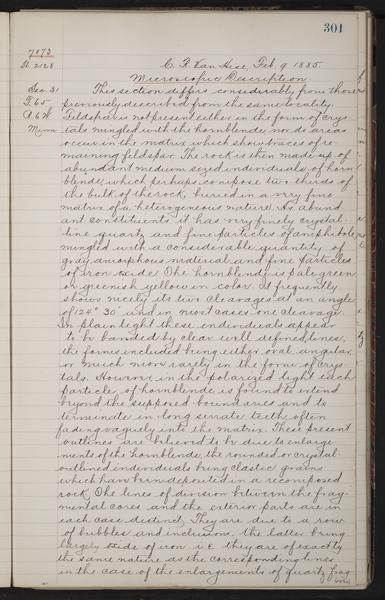 301
7873
Sl. 2128
C. R. Van Hise, Feb 9 1885.
Microscopic Description.
Sec 31
T. 65
R 6 W
Minn
This section differs considerably from those
previously described from the same locality.
Feldspar is not present either in the form of crys
tals mingled with the hornblende nor do areas
occur in the matrix which show traces of re-
maining feldspar. The rock is then made up of
abundant medium sized individuals of horn
blende, which perhaps compose two thirds of
the bulk of the rock, buried in a very fine
matrix of a heterogeneous nature. As abund
ant constituents it has very finely crystal-
line quartz and fine particles of amphibole
mingled with a considerable quantity of
gray amorphous material and fine particles
of iron oxide. The hornblende is pale green
or greenish yellow in color. It frequently
shows nicely its two cleavages at an angle
of 124° 30' and in most cases one cleavage.
In plain light these individuals appear
to be banded by clear well defined lines,
the forms included being either oval, angular
or much more rarely in the form of crys
tals. However, in the polarized light each
particle of hornblende is found to extend
beyond the supposed boundaries and to
terminate in long serrate teeth, often
fading vaguely into the matrix. These present
outlines are believed to be due to enlarge-
ments of the hornblende, the rounded or crystal
outlined individuals being clastic grains
which have been deposited in a recomposed
rock. The lines of division between the frag-
mental cores and the exterior parts are in
each case distinct. They are due to a row
of bubbles and inclusions, the latter being
largely oxide of iron i.e. they are of exactly
the same nature as the corresponding lines
in the case of the enlargements of quartz frag